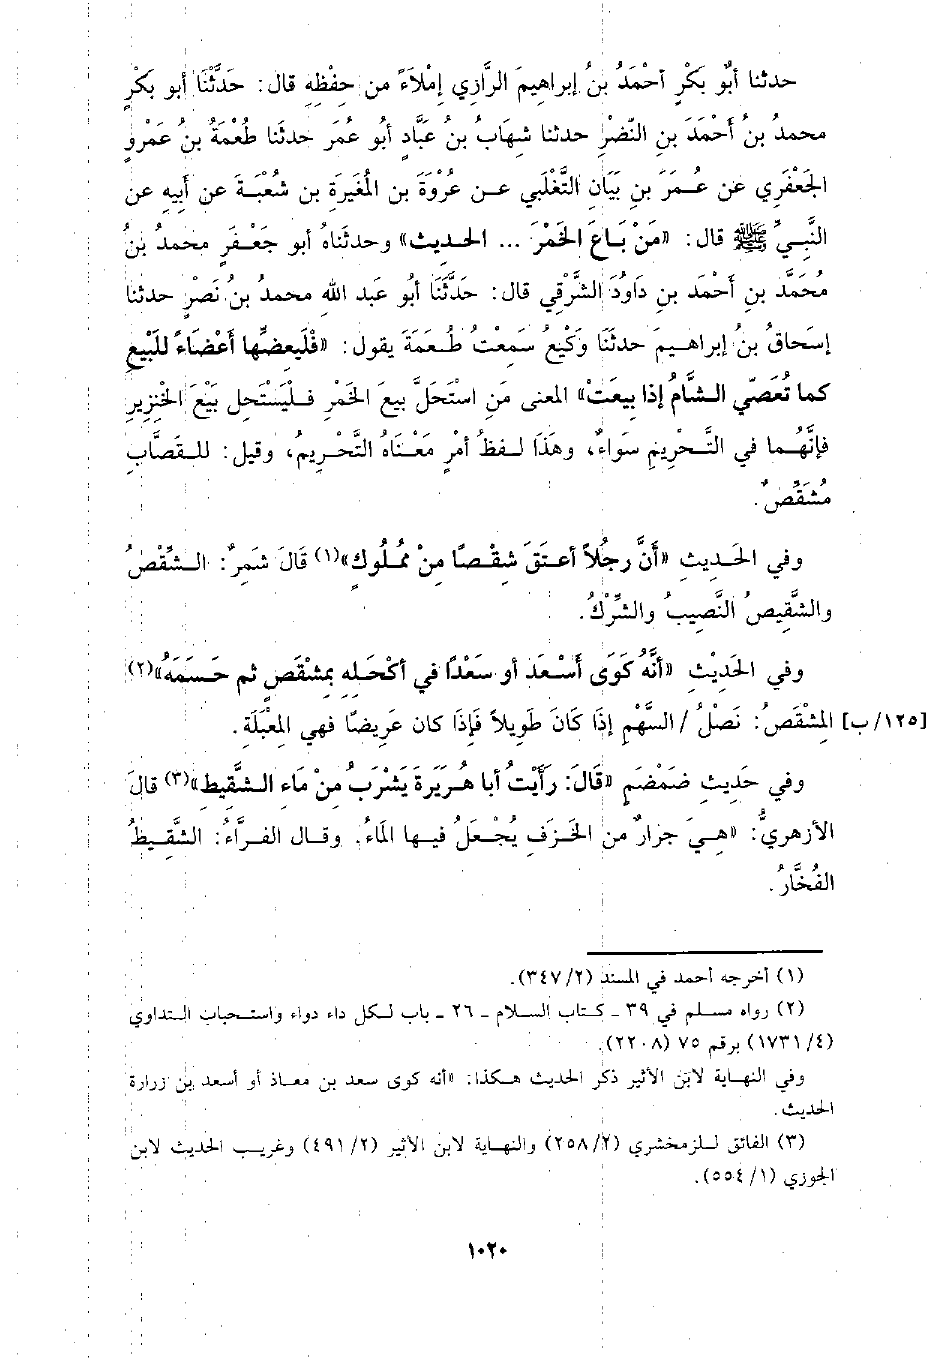 حدثنا أبُو بَكْرٍ أحْمَدُ بنُ إبراهيمَ الرَّازي إمْلاَءً من حِفْظِهِ قال: حَدَّثَنَا أبو بَكْرٍ
محمدُ بنُ أَحْمَدَ بنِ النَّضْرِ حدثنا شِهَابُ بنُ عَبَّاد أبُو عُمَر حدثَنا طُعْمَةُ بنُ عَمْروٍ
الجَعْفَرِي عن عُـمَرَ بنِ بَيَان التَّغْلَبي عـن عُرْوَةَ بن المُغيَرَةِ بن شُعْبَةَ عن أبيه عن
النَّبِيِّ ﷺ قال: «مَنْ بَـاعَ الخَمْرَ ... الحـديث» وحدثَنَاهُ أبو جَعْـفَرٍ محمدُ بنُ
مُحَمَّد بنِ أَحْمَدَ بنِ دَاوُدَ الشَّرْقي قال: حَدَّثَنَا أبُو عبد الله محمدُ بنُ نَصْرٍ حدثنا
إسحَاقُ بنُ إبراهـيم حدثَنَا وَكْيعُ سَمعْتُ طُـعَمَةَ يقول: «فْلَيعضِّها أعْضَاءً للبَيعِ
كما تُعَضّي الـشَّامُ إذا بِيعَتْ» المعنى مَنِ اسْتَحَلَّ بيعَ الخَمْرِ فـلْيَسْتَحل بَيْعَ الخِنْزِيرِ
فإنَّهُـما في التَّـحْريمِ سَواءٌ، وهَذَا لـفظُ أمْرٍ مَعْنَاهُ التَّحْـرِيمُ، وقيل: للـقَصَّابِ
مُشَقِّصٌ.
وفي الحَـديثِ «أنَّ رجُلاً أعـتَقَ شِقْـصًا مِنْ مُمْـلوكٍ»(١) قَالَ شَمِرٌ: الـشِّقْصُ
والشَّقِيصُ النَّصِيبُ والشِّرْكُ.
وفي الحَدِيْثِ «أنَّه كَوَى أَسْعَدَ أو سَعْدًا في أكْحَـلِهِ بِمِشْقَصٍ ثم حَـسَمَهُ»(٢)
[١٢٥/ ب] المِشْقَصُ: نَصْلُ / السَّهْمِ إذَا كَانَ طَويلاً فَإذَا كان عَريضًا فهي المِعْبَلَة.
وفي حَديثِ ضَمْضَمٍ «قَالَ: رَأَيْتُ أبا هُرَيَرةَ يَشْرَبُ مِنْ مَاء الـشَّقيط»(٣) قالَ
الأزهَرِيُّ: «هـيَ جرَارٌ من الخَـزَفِ يُجْـعَلُ فيـها المَاءُ. وقـال الفـرَّاءُ: الشَّقِيـطُ
الفُخَّارُ.
(١) أخرجه أحمد في المسند (٣٤٧/٢).
(٢) رواه مسـلم في ٣٩ ـ كتـاب السـلام ـ ٢٦ ـ باب لـكل داء دواء واستـحباب الـتداوي
(٤/ ١٧٣١) برقم ٧٥ (٢٢٠٨).
وفي النهـاية لابن الأثير ذكر الحديث هـكذا: «أنه كوى سعد بن معـاذ أو أسعد بن زرارة
الحديث.
(٣) الفائق لـلزمخشري (٢/ ٢٥٨) والنهـاية لابن الأثير (٢/ ٤٩١) وغريـب الحديث لابن
الجوزي (١/ ٥٥٤).
١٠٢٠